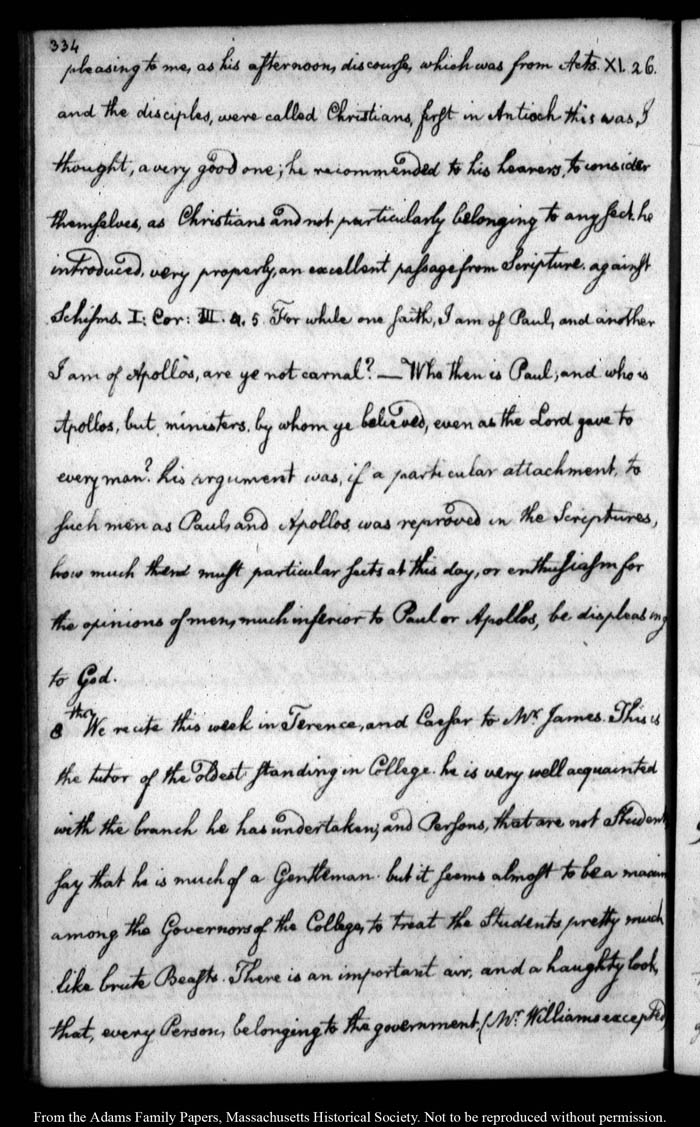 334
pleasing to me, as his afternoon, discourse, which was from Acts. XI. 26.
and the disciples, were called Christians, first in Antioch this was, I
thought, a very good one; he recommended to his hearers, to consider
themselves, as Christians and not particularly belonging to any sect. he
introduced, very properly, an excellent passage from Scripture. against
Schisms. I: Cor: III. 4. 5. For while one saith, I am of Paul, and another
I am of Apollos, are ye not carnal? — Who then is Paul, and who is
Apollos, but ministers, by whom ye believed, even as the Lord gave to
every man? his argument was, if a particular attachment, to
such men as Paul, and Apollos, was reproved in the Scriptures,
how much must particular sects at this day, or enthusiasm for
the opinions of men, much inferior to Paul or Apollos, be displeasing
to God.
8th We recite this week in Terence, and Caesar to Mr. James. This is
the tutor of the oldest standing in College. he is very well acquainted
with the branch he has undertaken; and Persons, that are not Student
say that he is much of a Gentleman. but it seems almost to be a maxim
among the Governors of the College, to treat the Students pretty much
like brute Beasts. There is an important air, and a haughty look,
that, every Person, belonging to the government, (Mr. Williams excepted)
From the Adams Family Papers, Massachusetts Historical Society. Not to be reproduced without permission.